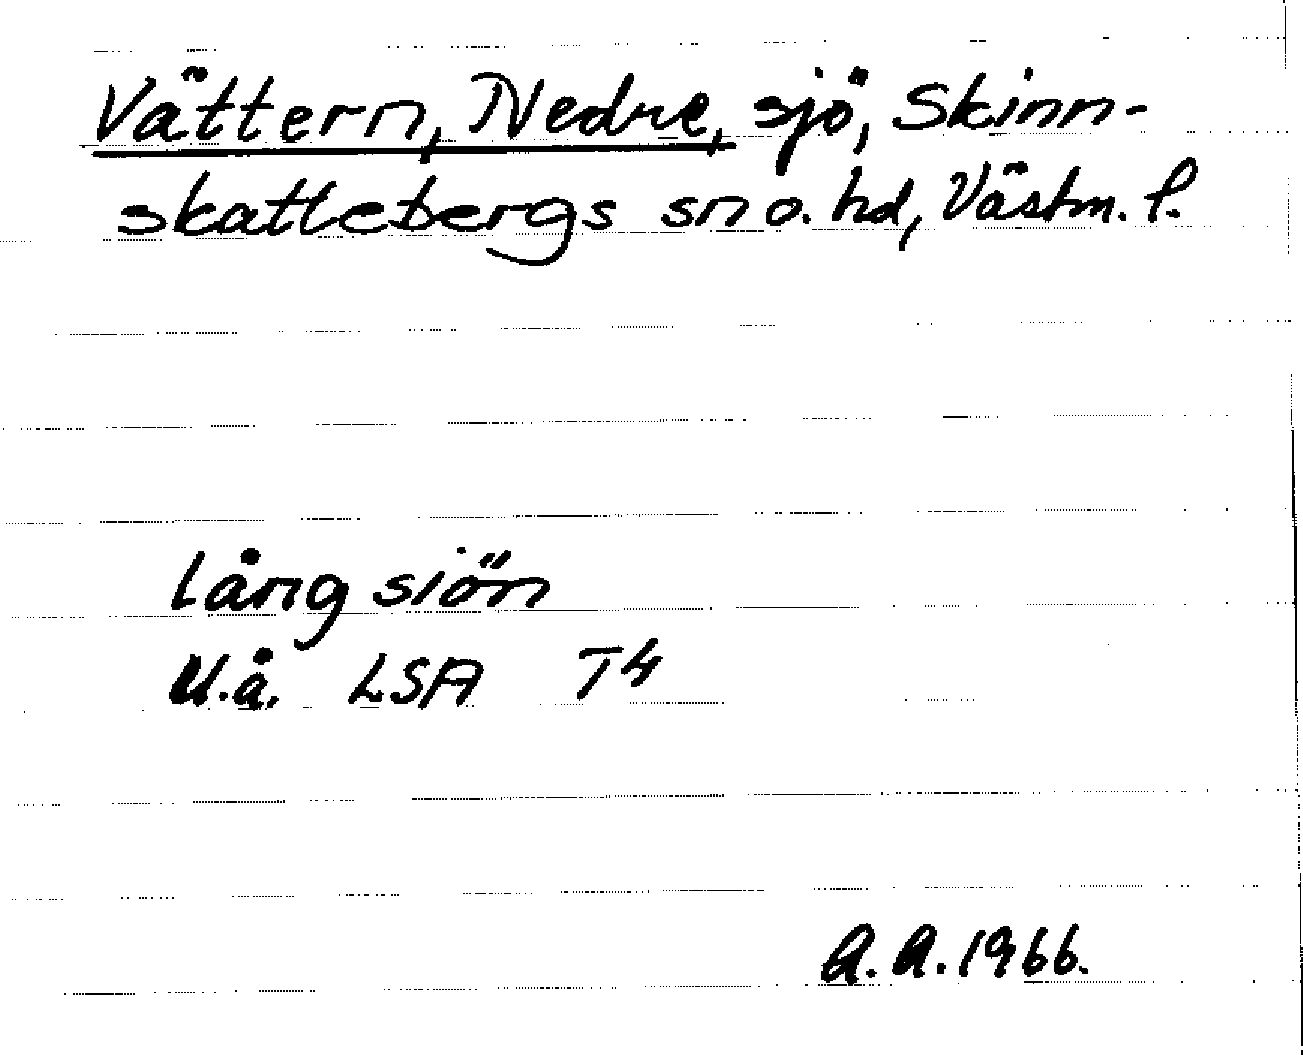 Vättern, Nedre, sjö, Skinn-
skattebergs sn o. hd, Västm. l.
lång siön
U.å. LSA T4
A.A. 1966.